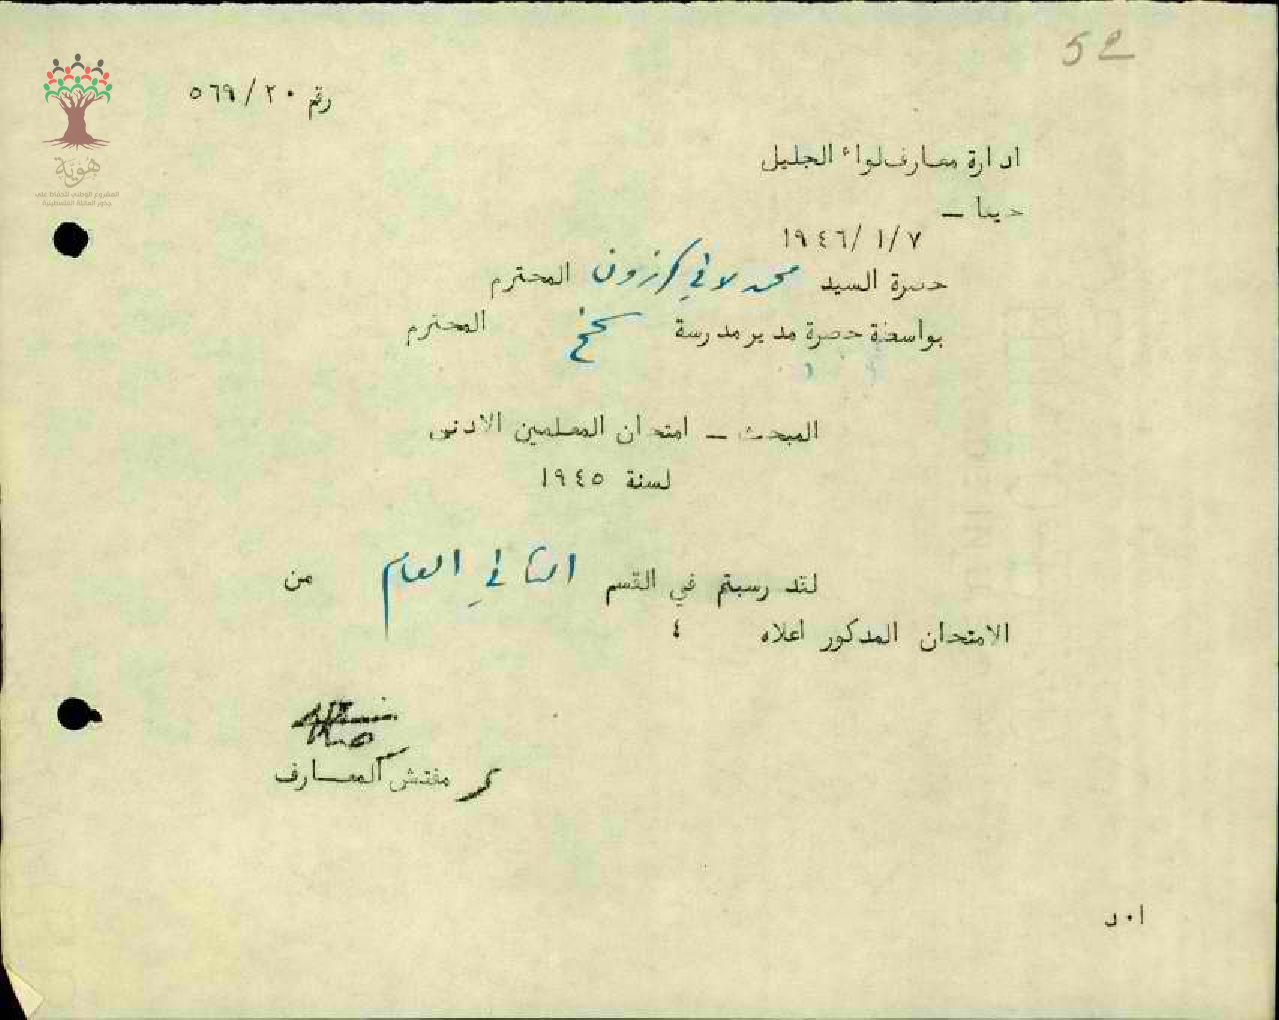 52
رقم ٢٠/٥٦٩
هَوِيَّة
المشروع الوطني للحفاظ على
جذور العائلة الفلسطينية
ادارة معارف لواء الجليل
حيفا —
١٩٤٦/١/٧
حضرة السيد محمد لافي المحترم
بواسطة حضرة مدير مدرسة المحترم
المبحث — امتحان المعلمين الادنى
لسنة ١٩٤٥
لقد رسبتم في القسم الثاني العام من
الامتحان المذكور اعلاه ٤
مفتش المعارف
ا٠د